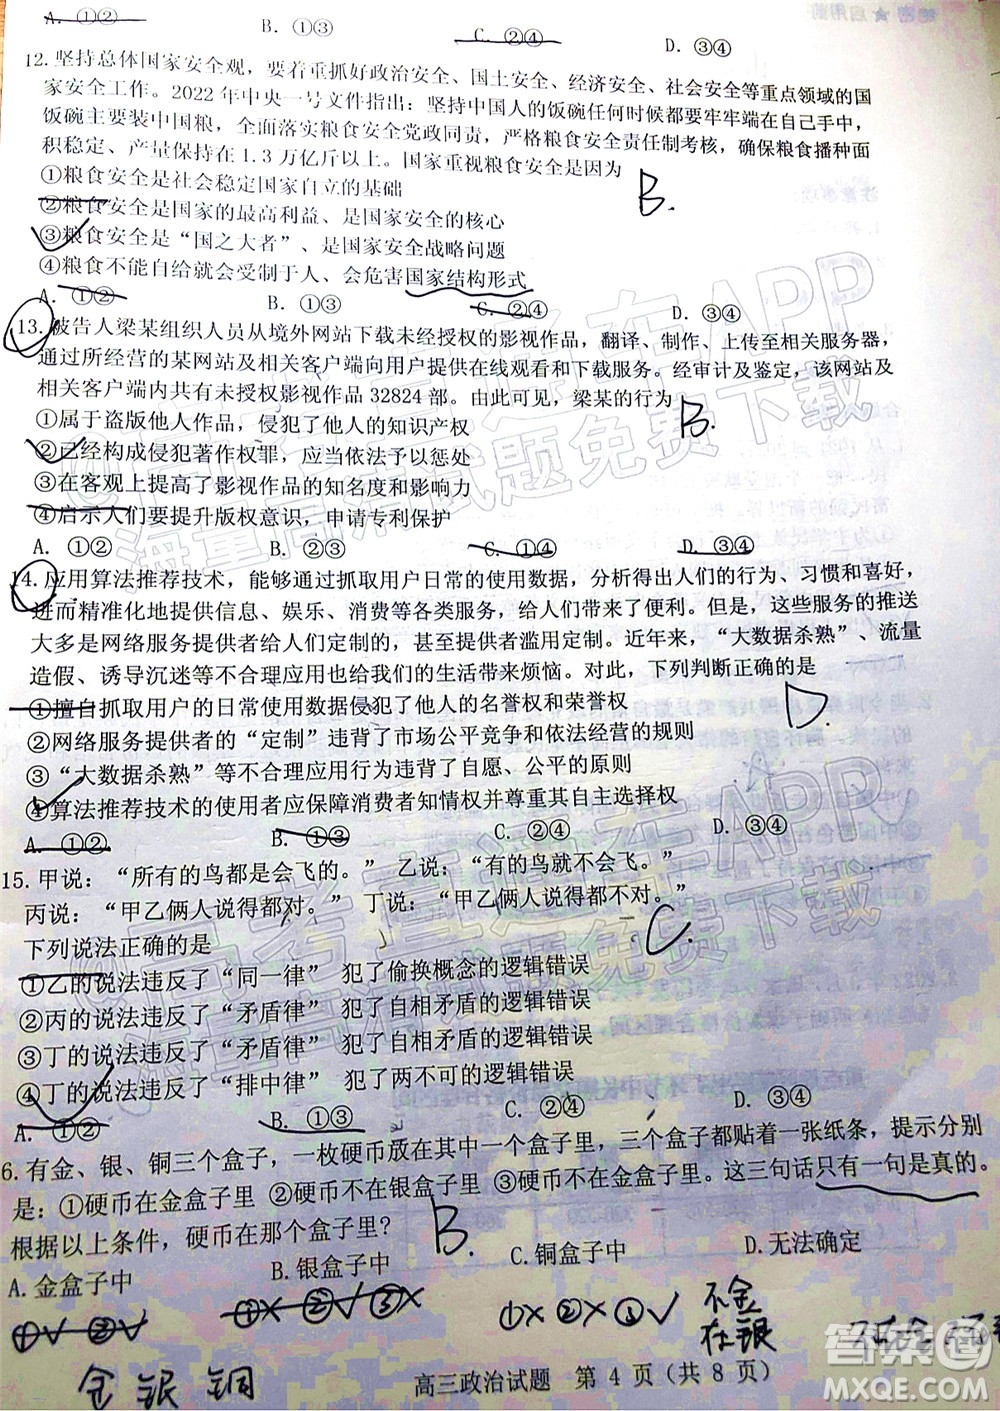 A. ①② B. ①③ C. ②④ D. ③④
12. 坚持总体国家安全观，要着重抓好政治安全、国土安全、经济安全、社会安全等重点领域的国
家安全工作。2022年中央一号文件指出：坚持中国人的饭碗任何时候都要牢牢端在自己手中，
饭碗主要装中国粮，全面落实粮食安全党政同责，严格粮食安全责任制考核，确保粮食播种面
积稳定、产量保持在1.3万亿斤以上。国家重视粮食安全是因为
①粮食安全是社会稳定国家自立的基础
B.
②粮食安全是国家的最高利益、是国家安全的核心
③粮食安全是“国之大者”、是国家安全战略问题
④粮食不能自给就会受制于人、会危害国家结构形式
A. ①② B. ①③ C. ②④ D. ③④
13. 被告人梁某组织人员从境外网站下载未经授权的影视作品，翻译、制作、上传至相关服务器，
通过所经营的某网站及相关客户端向用户提供在线观看和下载服务。经审计及鉴定，该网站及
相关客户端内共有未授权影视作品32824部。由此可见，梁某的行为
B.
①属于盗版他人作品，侵犯了他人的知识产权
②已经构成侵犯著作权罪，应当依法予以惩处
③在客观上提高了影视作品的知名度和影响力
④启示人们要提升版权意识，申请专利保护
A. ①② B. ②③ C. ①④ D. ③④
14. 应用算法推荐技术，能够通过抓取用户日常的使用数据，分析得出人们的行为、习惯和喜好，
进而精准化地提供信息、娱乐、消费等各类服务，给人们带来了便利。但是，这些服务的推送
大多是网络服务提供者给人们定制的，甚至提供者滥用定制。近年来，“大数据杀熟”、流量
造假、诱导沉迷等不合理应用也给我们的生活带来烦恼。对此，下列判断正确的是
①擅自抓取用户的日常使用数据侵犯了他人的名誉权和荣誉权
D.
②网络服务提供者的“定制”违背了市场公平竞争和依法经营的规则
③“大数据杀熟”等不合理应用行为违背了自愿、公平的原则
④算法推荐技术的使用者应保障消费者知情权并尊重其自主选择权
A. ①② B. ①③ C. ②④ D. ③④
15. 甲说：“所有的鸟都是会飞的。” 乙说：“有的鸟就不会飞。”
丙说：“甲乙俩人说得都对。” 丁说：“甲乙俩人说得都不对。”
下列说法正确的是
C.
①乙的说法违反了“同一律” 犯了偷换概念的逻辑错误
②丙的说法违反了“矛盾律” 犯了自相矛盾的逻辑错误
③丁的说法违反了“矛盾律” 犯了自相矛盾的逻辑错误
④丁的说法违反了“排中律” 犯了两不可的逻辑错误
A. ①② B. ①③ C. ②④ D. ③④
6. 有金、银、铜三个盒子，一枚硬币放在其中一个盒子里，三个盒子都贴着一张纸条，提示分别
是：①硬币在金盒子里 ②硬币不在银盒子里 ③硬币不在金盒子里。这三句话只有一句是真的。
根据以上条件，硬币在那个盒子里?
B.
A. 金盒子中 B. 银盒子中 C. 铜盒子中 D. 无法确定
①√ ②√ ①× ②√ ③× ①× ②× ③√ 不金
在银
金 银 铜
高三政治试题 第 4 页（共 8 页）
@高考直通车APP
海量高清试题免费下载
@高考直通车APP
海量高清试题免费下载
答案圈
MXQE.COM